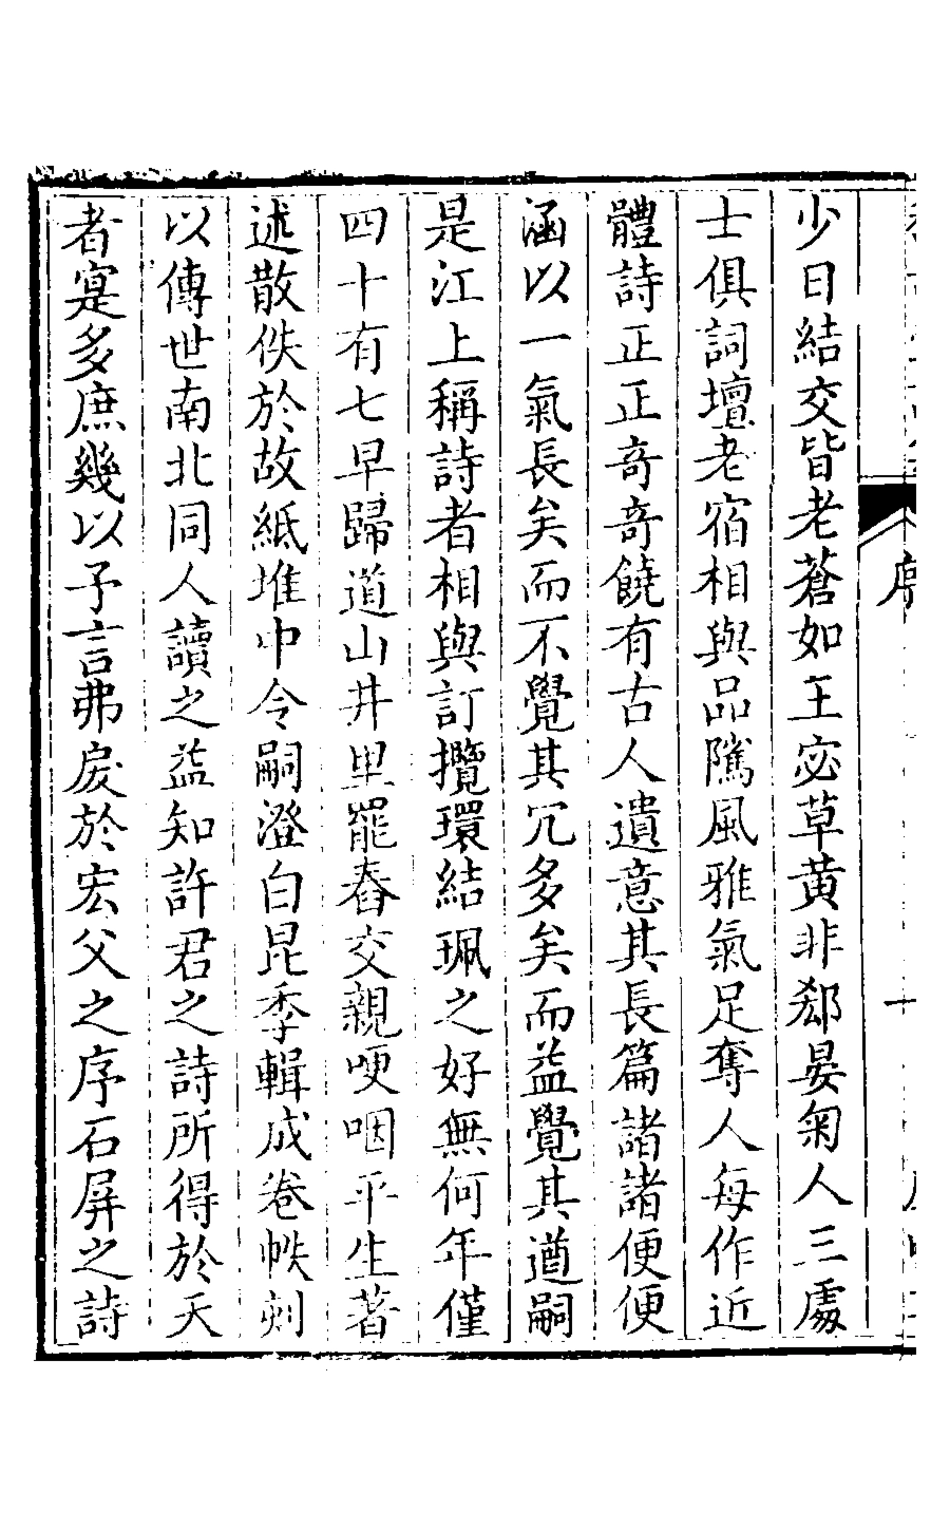 少日結交皆老蒼如王宓草黄非郄晏菊人三處
士俱詞壇老宿相與品隲風雅氣足奪人每作近
體詩正正奇奇饒有古人遺意其長篇諸諸便便
涵以一氣長矣而不覺其冗多矣而益覺其遒嗣
是江上稱詩者相與訂攬環結珮之好無何年僅
四十有七早歸道山井里罷舂交親哽咽平生著
述散佚於故紙堆中令嗣澄白昆季輯成卷帙刿
以傳世南北同人讀之益知許君之詩所得於天
者寔多庶幾以予言弗戾於宏父之序石屏之詩
序